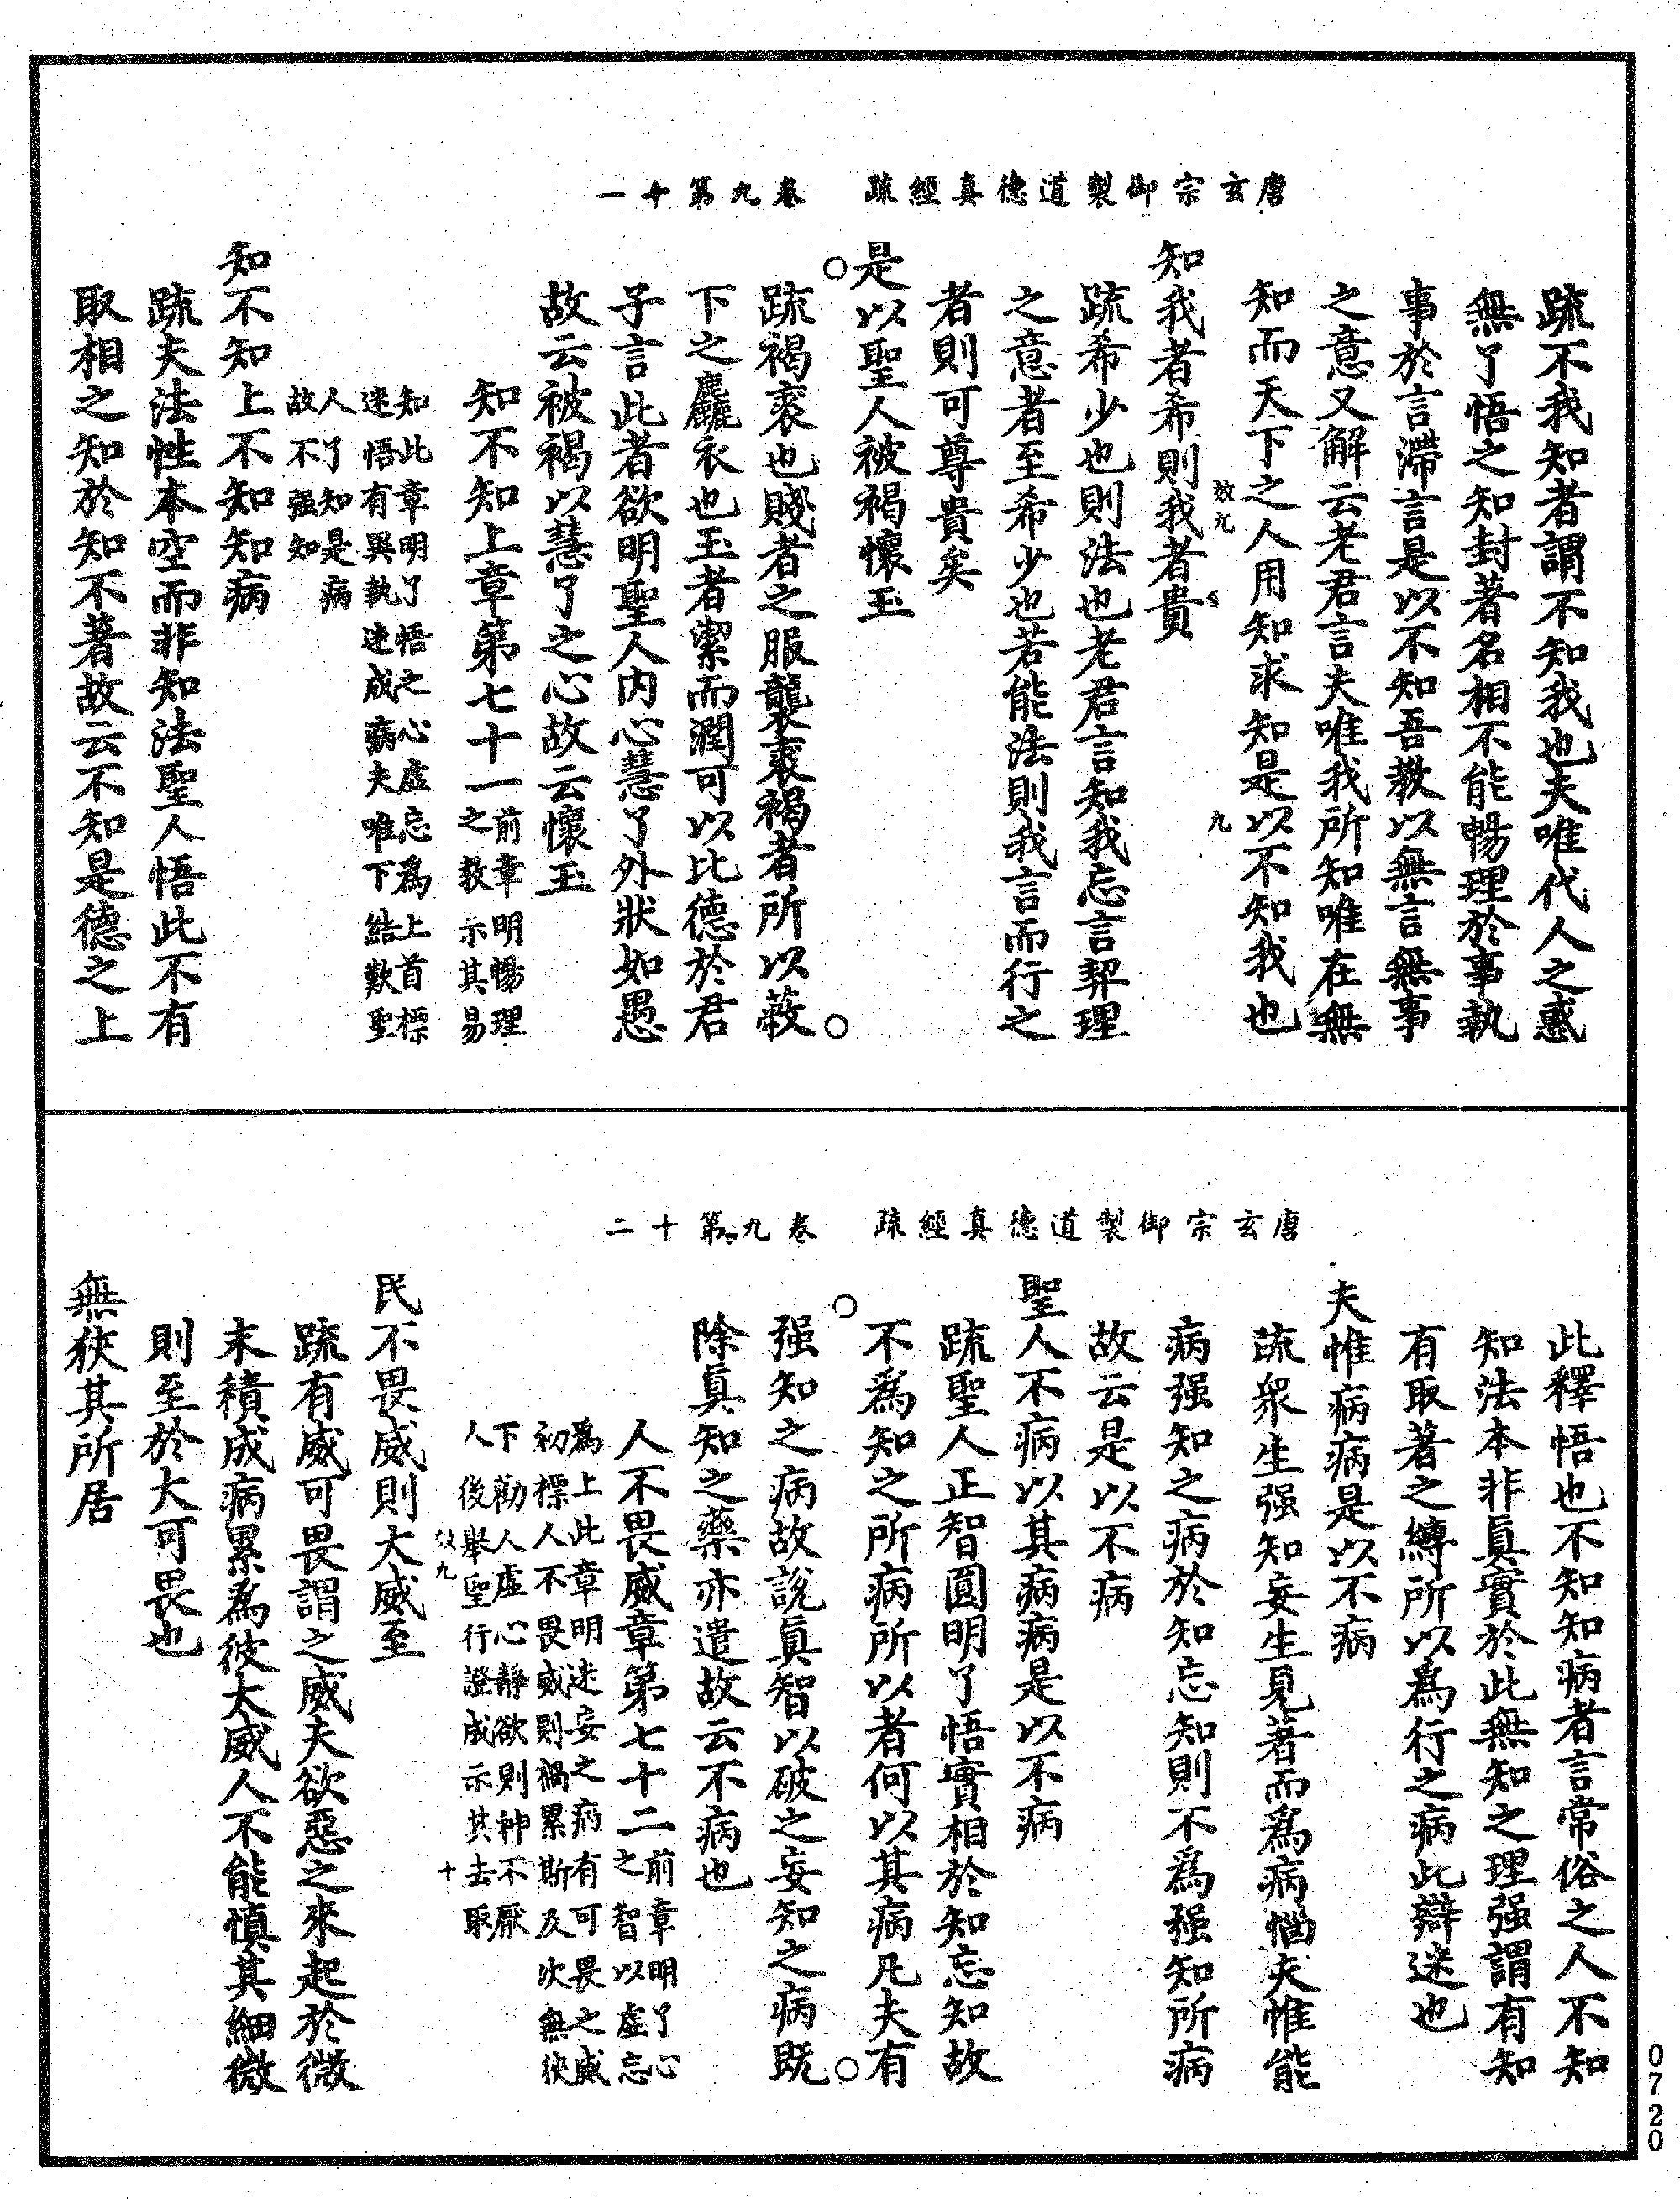 唐玄宗御製道德真經疏　卷九第十一
疏不我知者謂不知我也夫唯代人之惑
無了悟之知封著名相不能暢理於事執
事於言滯言是以不知吾教以無言無事
之意又解云老君言夫唯我所知唯在無
知而天下之人用知求知是以不知我也
效九
九
知我者希則我者貴
疏希少也則法也老君言知我忘言契理
之意者至希少也若能法則我言而行之
者則可尊貴矣
是以聖人被褐懷玉
疏褐裘也賤者之服襲裘褐者所以蔽
下之麤衣也玉者潔而潤可以比德於君
子言此者欲明聖人内心慧了外狀如愚
故云被褐以慧了之心故云懷玉
知不知上章第七十一前章明暢理之教示其易
知此章明了悟之心虛忘爲上首標
迷悟有異執迷成病夫唯下結歎聖
人了知是病
故不强知
知不知上不知知病
疏夫法性本空而非知法聖人悟此不有
取相之知於知不著故云不知是德之上
唐玄宗御製道德真經疏　卷九第十二
此釋悟也不知知病者言常俗之人不知
知法本非眞實於此無知之理强謂有知
有取著之縛所以爲行之病此辯迷也
夫惟病病是以不病
疏衆生强知妄生見著而爲病惱夫惟能
病强知之病於知忘知則不爲强知所病
故云是以不病
聖人不病以其病病是以不病
疏聖人正智圓明了悟實相於知忘知故
不爲知之所病所以者何以其病凡夫有
强知之病故說眞智以破之妄知之病既
除眞知之藥亦遣故云不病也
人不畏威章第七十二前章明了心之智以虛忘
爲上此章明迷妄之病有可畏之威
初標人不畏威則禍累斯及次無狹
下勸人虛心靜欲則神不厭
人後舉聖行證成示其去取
效九
十
民不畏威則大威至
疏有威可畏謂之威夫欲惡之來起於微
末積成病累爲彼大威人不能慎其細微
則至於大可畏也
無狹其所居
0720